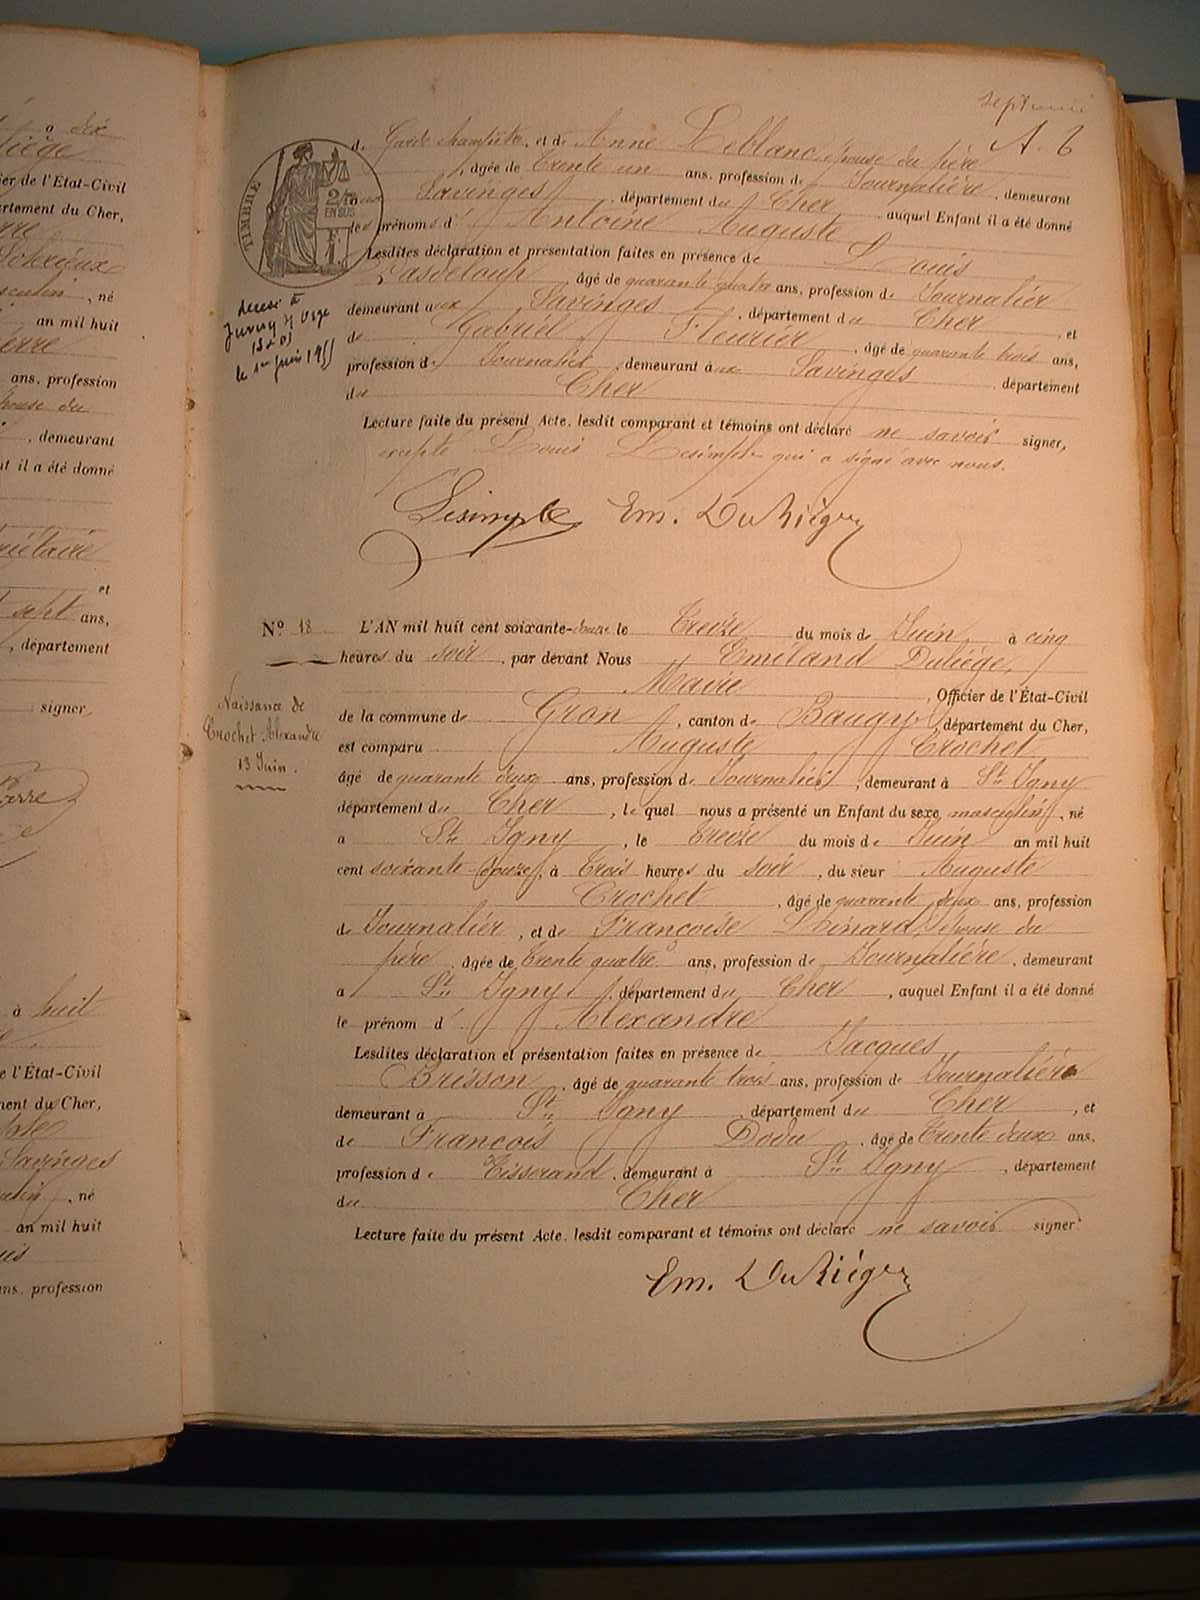 o dix
iège
ier de l'État-Civil
artement du Cher,
culin, né
an mil huit
ierre
ans, profession
épouse du
, demeurant
t il a été donné
riétaire
et
sept ans,
, département
signer,
à huit
e l'État-Civil
ment du Cher,
Savinges
, né
an mil huit
ans, profession
A. 6
TIMBRE
EN SUS
de Garde champêtre, et de Anne Leblanc, épouse du père
, âgée de trente un ans, profession de Journalière, demeurant
aux Savinges, département du Cher auquel Enfant il a été donné
les prénoms d' Antoine Auguste
Lesdites déclaration et présentation faites en présence de Louis
Pasdeloup âgé de quarante quatre ans, profession de Journalier
demeurant aux Savinges, département du Cher, et
de Gabriel Fleurier, âgé de quarante trois ans,
profession de Journalier, demeurant aux Savinges département
du Cher
Lecture faite du présent Acte, lesdit comparant et témoins ont déclaré ne savoir signer,
excepté Louis Lesimple qui a signé avec nous.
Lesimple Em. Duliège
décédé à
Juvisy s/ Orge
le 1er juin 1955
No 18 L'AN mil huit cent soixante-douze le Treize du mois de Juin, à cinq
heures du soir, par devant Nous Emiland Duliège,
Maire, Officier de l'État-Civil
de la commune de Gron, canton de Baugy, département du Cher,
est comparu Auguste Crochet
âgé de quarante deux ans, profession de Journalier, demeurant à St Igny
département du Cher, le quel nous a présenté un Enfant du sexe masculin, né
a St Igny, le treize du mois de Juin an mil huit
cent soixante douze, à trois heures du soir, du sieur Auguste
Crochet, âgé de quarante deux ans, profession
de Journalier, et de Françoise Linard, épouse du
père, âgée de trente quatre ans, profession de Journalière, demeurant
a St Igny, département du Cher, auquel Enfant il a été donné
le prénom d' Alexandre
Lesdites déclaration et présentation faites en présence de Jacques
Brisson, âgé de quarante trois ans, profession de Journalier
demeurant à St Igny département du Cher, et
de François Dodu, âgé de trente deux ans,
profession de Tisserand, demeurant à St Igny, département
du Cher
Lecture faite du présent Acte, lesdit comparant et témoins ont déclaré ne savoir signer.
Em. Duliège
Naissance de
Crochet Alexandre
13 Juin.